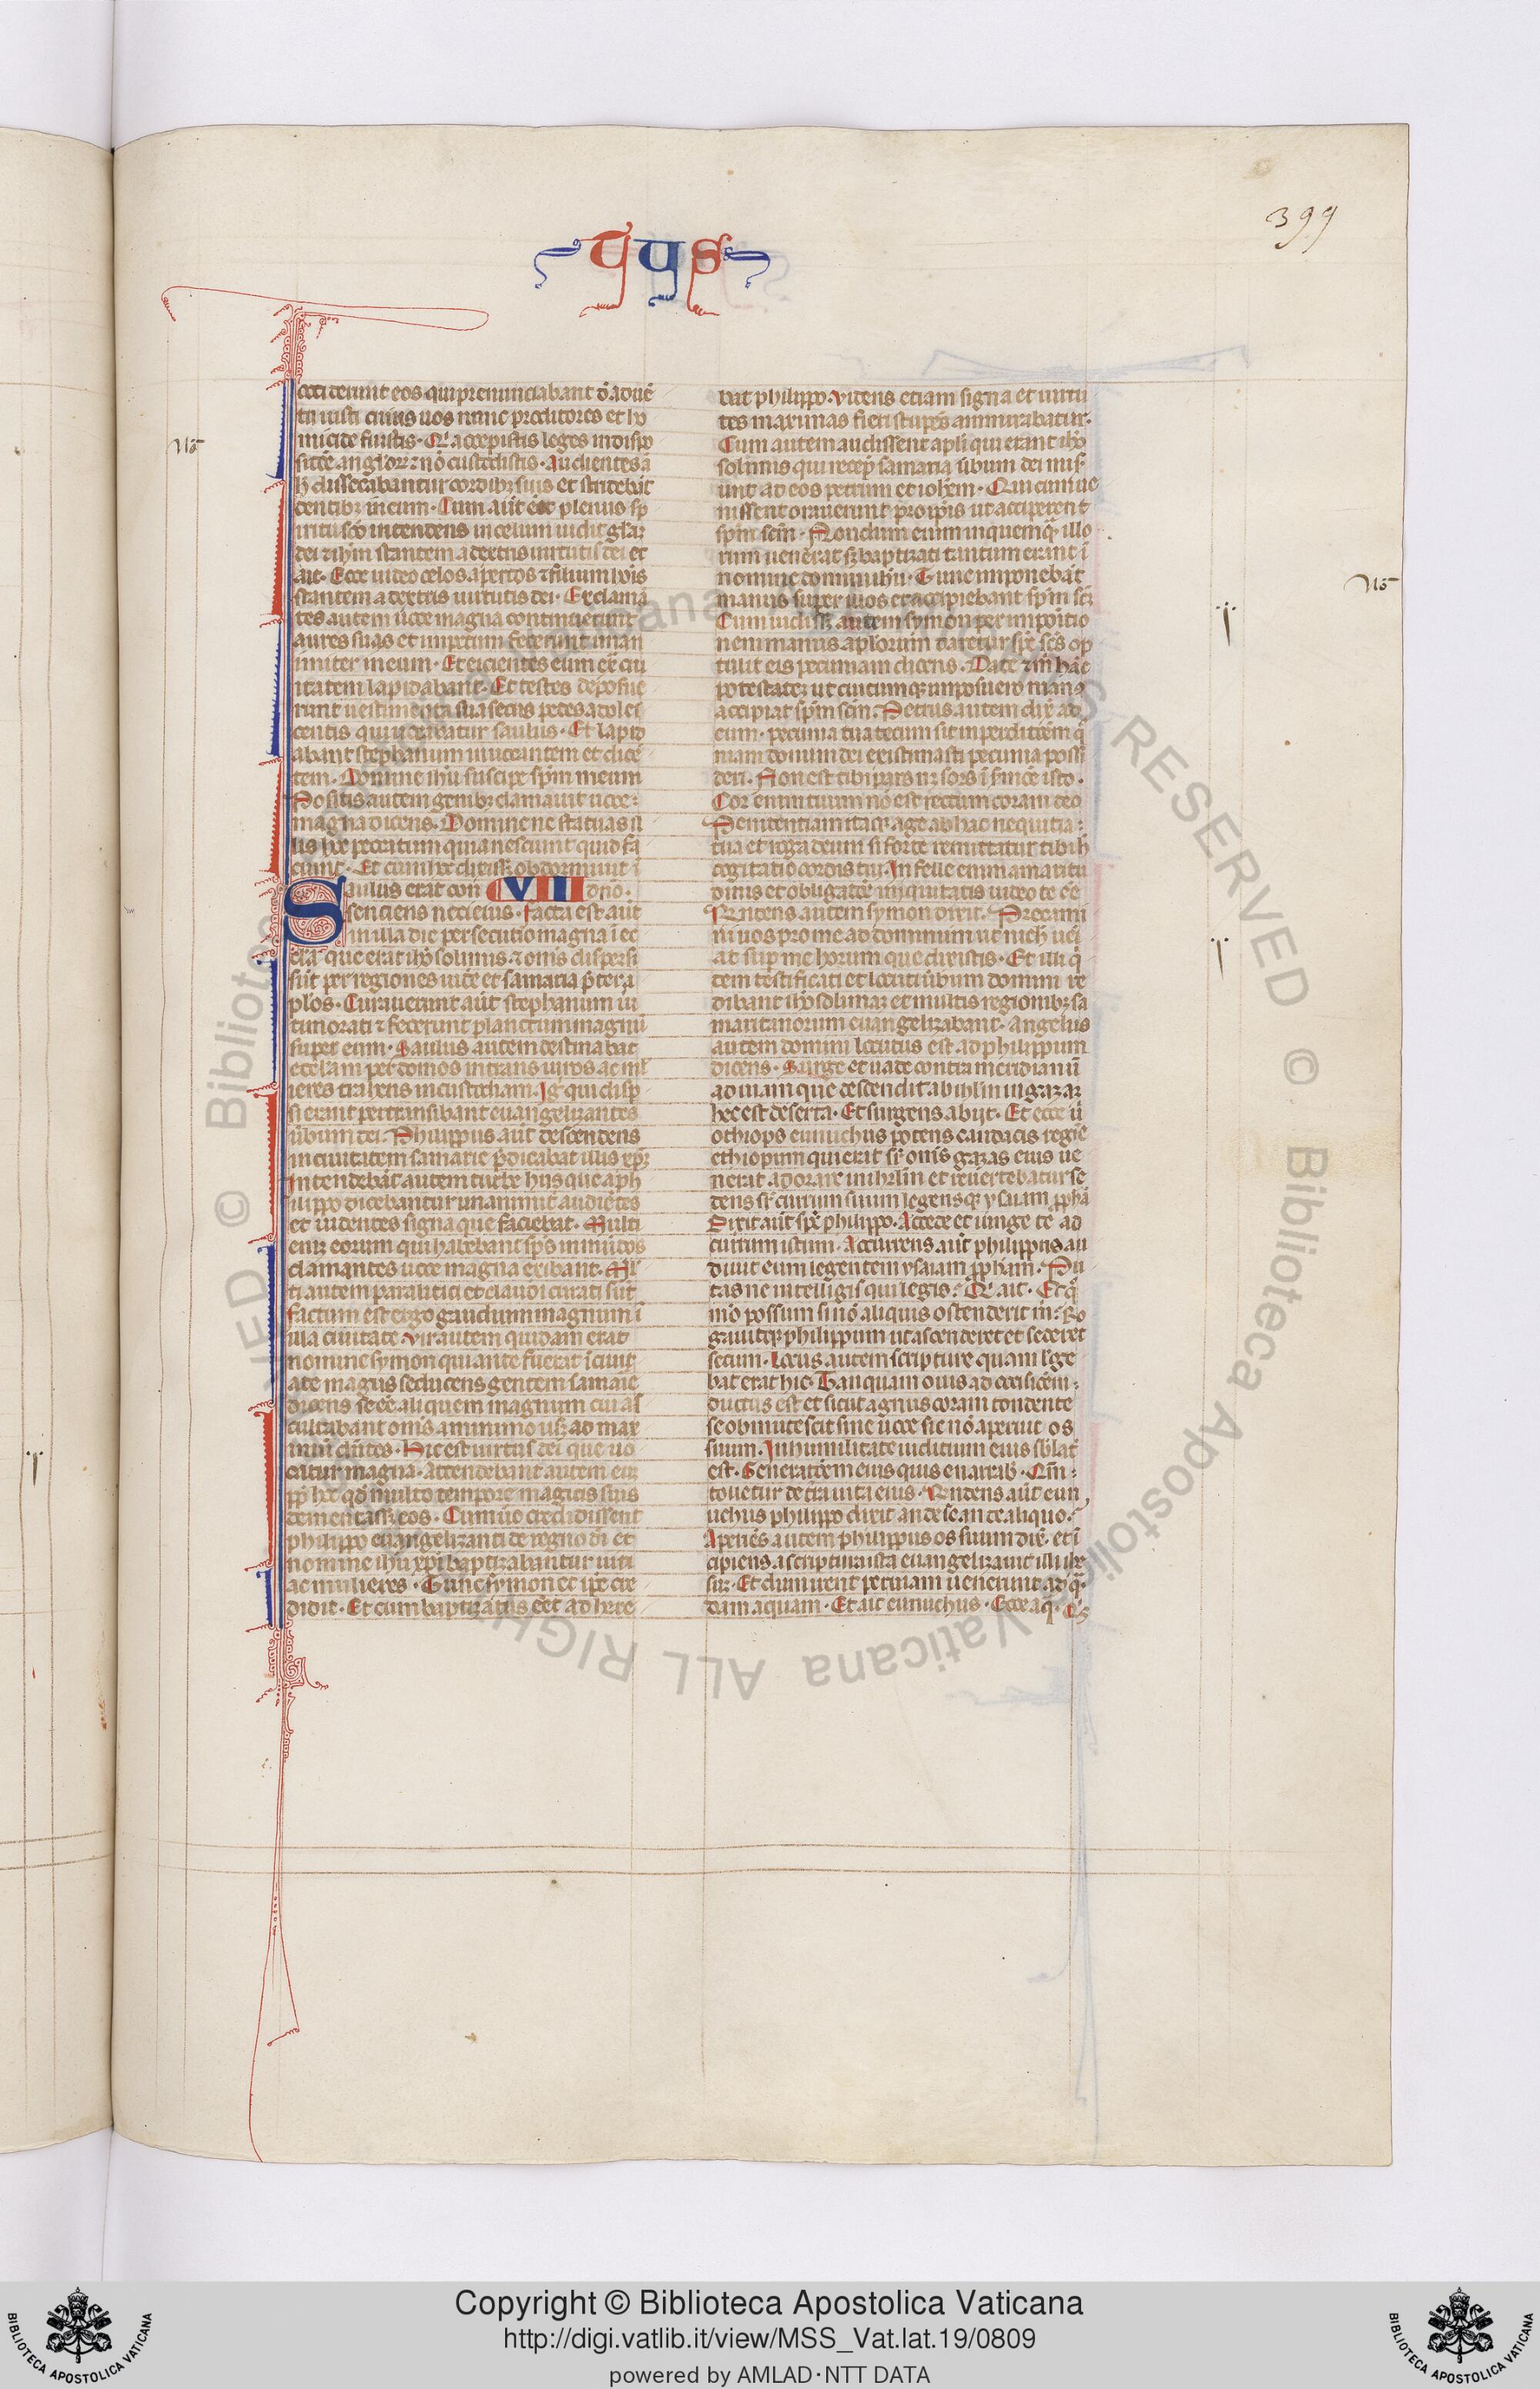 399
TUS
occiderunt eos qui prenunciabant d̄ aduē
tu iusti cuius uos nunc proditores et ho
micide fuistis. Q̇ accepistis leges in dispo
sitōe angl'oꝝ ⁊ nō custodistis. Audientes ā
h̄ dissecabantur cordibꝫ suis et stridebāt
dentibꝫ in eum. Cum aūt eēt plenus sp
iritu scō intendens in celum uidit gl'aꝫ
dei ⁊ ihm̄ stantem a dextris uirtutis dei et
ait. Ecce uideo celos apertos ⁊ filium hoīs
stantem a dextris uirtutis dei. Exclamā
tes autem uoce magna continuerunt
aures suas et impetum fecerunt unan
imiter in eum. Et eicientes eum ex̄ ciu
itatem lapidabant. Et testes deposue
runt uestimenta sua secus pedes adoles
centis qui uocabatur saulus. Et lapid
abant stephanum inuocantem et dicē
tem. Domine ihū suscipe spm̄ meum
Positis autem genibꝫ clamauit uoce
magna dicens. Domine ne statuas il
lis hoc peccatum quia nesciunt quid fa
ciunt. Et cum hoc dixissꝫ obdormiuit ī
Saulus erat con VIII dn̄o.
senciens neci eius. facta est aūt
in illa die persecutio magna ī ec
cl'a que erat ih̓osolimis ⁊ om̄s dispersi
sūt per regiones iudee et samaria p̄ter a
pl'os. Curauerunt aūt stephanum ui
ri timorati ⁊ fecerunt planctum magnū
super eum. Saulus autem deuastabat
ecclesiam per domos intrans uiros ac mul
ieres trahens in custodiam. Ig̓ qui disp
si erant pertransibant euangelizantes
ūbum dei. Philippus aūt descendens
in ciuitatem samarie p̄dicabat illis xp̄ꝫ
Intendebāt autem turbe hijs que a ph
ilippo dicebantur unanimit̓ audiētes
et uidentes signa que faciebat. Multi
enī eorum qui habebant sp̄s inmūdos
clamantes uoce magna exibant. Ml'
ti autem paralitici et claudi curati sūt
factum est ergo gaudium magnum ī
illa ciuitate. Vir autem quidam erat
nomine symon qui ante fuerat ī ciuit
ate magus seducens gentem samarie
dicens se eē aliquem magnum cui as
cultabant om̄s a minimo usꝫ ad max
imū dicētes. Hic est uirtus dei que uo
catur magna. Attendebant autem eū
ꝓp̄ hoc qd̓ multo tempore magicis suis
dementassꝫ eos. Cum ūo credidissent
philippo euangelizanti de regno di et
nomine ihū xp̄i baptizabantur uiri
ac mulieres. Tunc symon et ip̄e cre
didit. Et cum baptizatus eēt adhere
bat philippo. Videns etiam signa et uirtu
tes maximas fieri stupēs ammirabatur.
Cum autem audissent apl'i qui erant ih̓o
solimis qui recep̄ samaria ūbum dei mis
unt ad eos petrum et ioh̄em. Qui cum ue
nissent orauerunt pro ip̄is ut acciperent
spm̄ scm̄. Nondum enim in quemq̄ illo
rum uenerat sꝫ baptizati tantum erant ī
nomine domini ihū. Tunc imponebāt
manus super illos et accipiebant spm̄ scꝫ
Cum uidissꝫ autem symon per impoitio
nem manus apl'orum daretur sp̄c sc̄s op
tulit eis pecuniam dicens. Date ⁊ m̄ hāc
potestatē ut cuicumqꝫ imposuero manꝰ
accipiat spm̄ scm̄. Petrus autem dix̄ ad
eum. pecunia tua tecum sit in perditiōem q̄
niam donum dei existimasti pecunia possi
deri. Non est tibi pars nꝫ sors ī s̓mōe isto.
Cor enim tuum nō est rectum coram deo
Penitentiam itaqꝫ age ab hac nequitia
tua et roga deum si forte remittatur tibi h̄
cogitatio cordis tui. In felle enim amaritu
dinis et obligatōe iniquitatis uideo te eē
Rn̄dens autem symon dixit. Precami
ni uos pro me ad dominum ut nich̓ ueī
at sup̄ me horum que dixistis. Et illi q̄
dem testificati et locuti ūbum domini re
dibant ih̓osolimaꝫ et multis regionibꝫ sa
maritanorum euangelizabant. Angelus
autem domini locutus est ad philippum
dicens. Surge et uade contra meridianū
ad uiam que descendit ab ihrl'm in gazaꝫ
hec est deserta. Et surgens abijt. Et ecce ū
ethiops eunuchus potens candacis regīe
ethiopum qui erat sr̄ om̄is gazas eius ue
nerat adorare in ihrl'm et reuertebatur se
dens sr̄ currum suum legensqꝫ ysaiam ꝓphā
Dixit aūt sp̄c philippo. Accede et iunge te ad
currum istum. Accurrens aūt philippus au
diuit eum legentem ysaiam ꝓpham. Pu
tas ne intelligis qui legis. Q̇ ait. Et q̄
mō possum si nō aliquis ostenderit m̄. Ro
gauitqꝫ philippum ut ascenderet et sederet
secum. Locus autem scripture quam lege
bat erat hic. Tanquam ouis ad occisiōem
ductus est et sicut agnus coram tondente
se obmutescit sine uoce sic nō aperuit os
suum. In humilitate iudicium eius sb̓lat̄
est. Generatōem eius quis enarrab̓. Qm̄
tolletur de t̓ra uita eius. Rn̄dens aūt eun
uchus philippo dixit
Aperiēs autem philippus os suum
cipiens a scriptura ista euangelizauit illi ih̄
Et dum irent per uiam uenerunt ad q̄
dam aquam. Et ait eunuchus. Ecce aq̄.
Copyright © Biblioteca Apostolica Vaticana
http://digi.vatlib.it/view/MSS_Vat.lat.19/0809
powered by AMLAD·NTT DATA
BIBLIOTECA APOSTOLICA VATICANA
BIBLIOTECA APOSTOLICA VATICANA